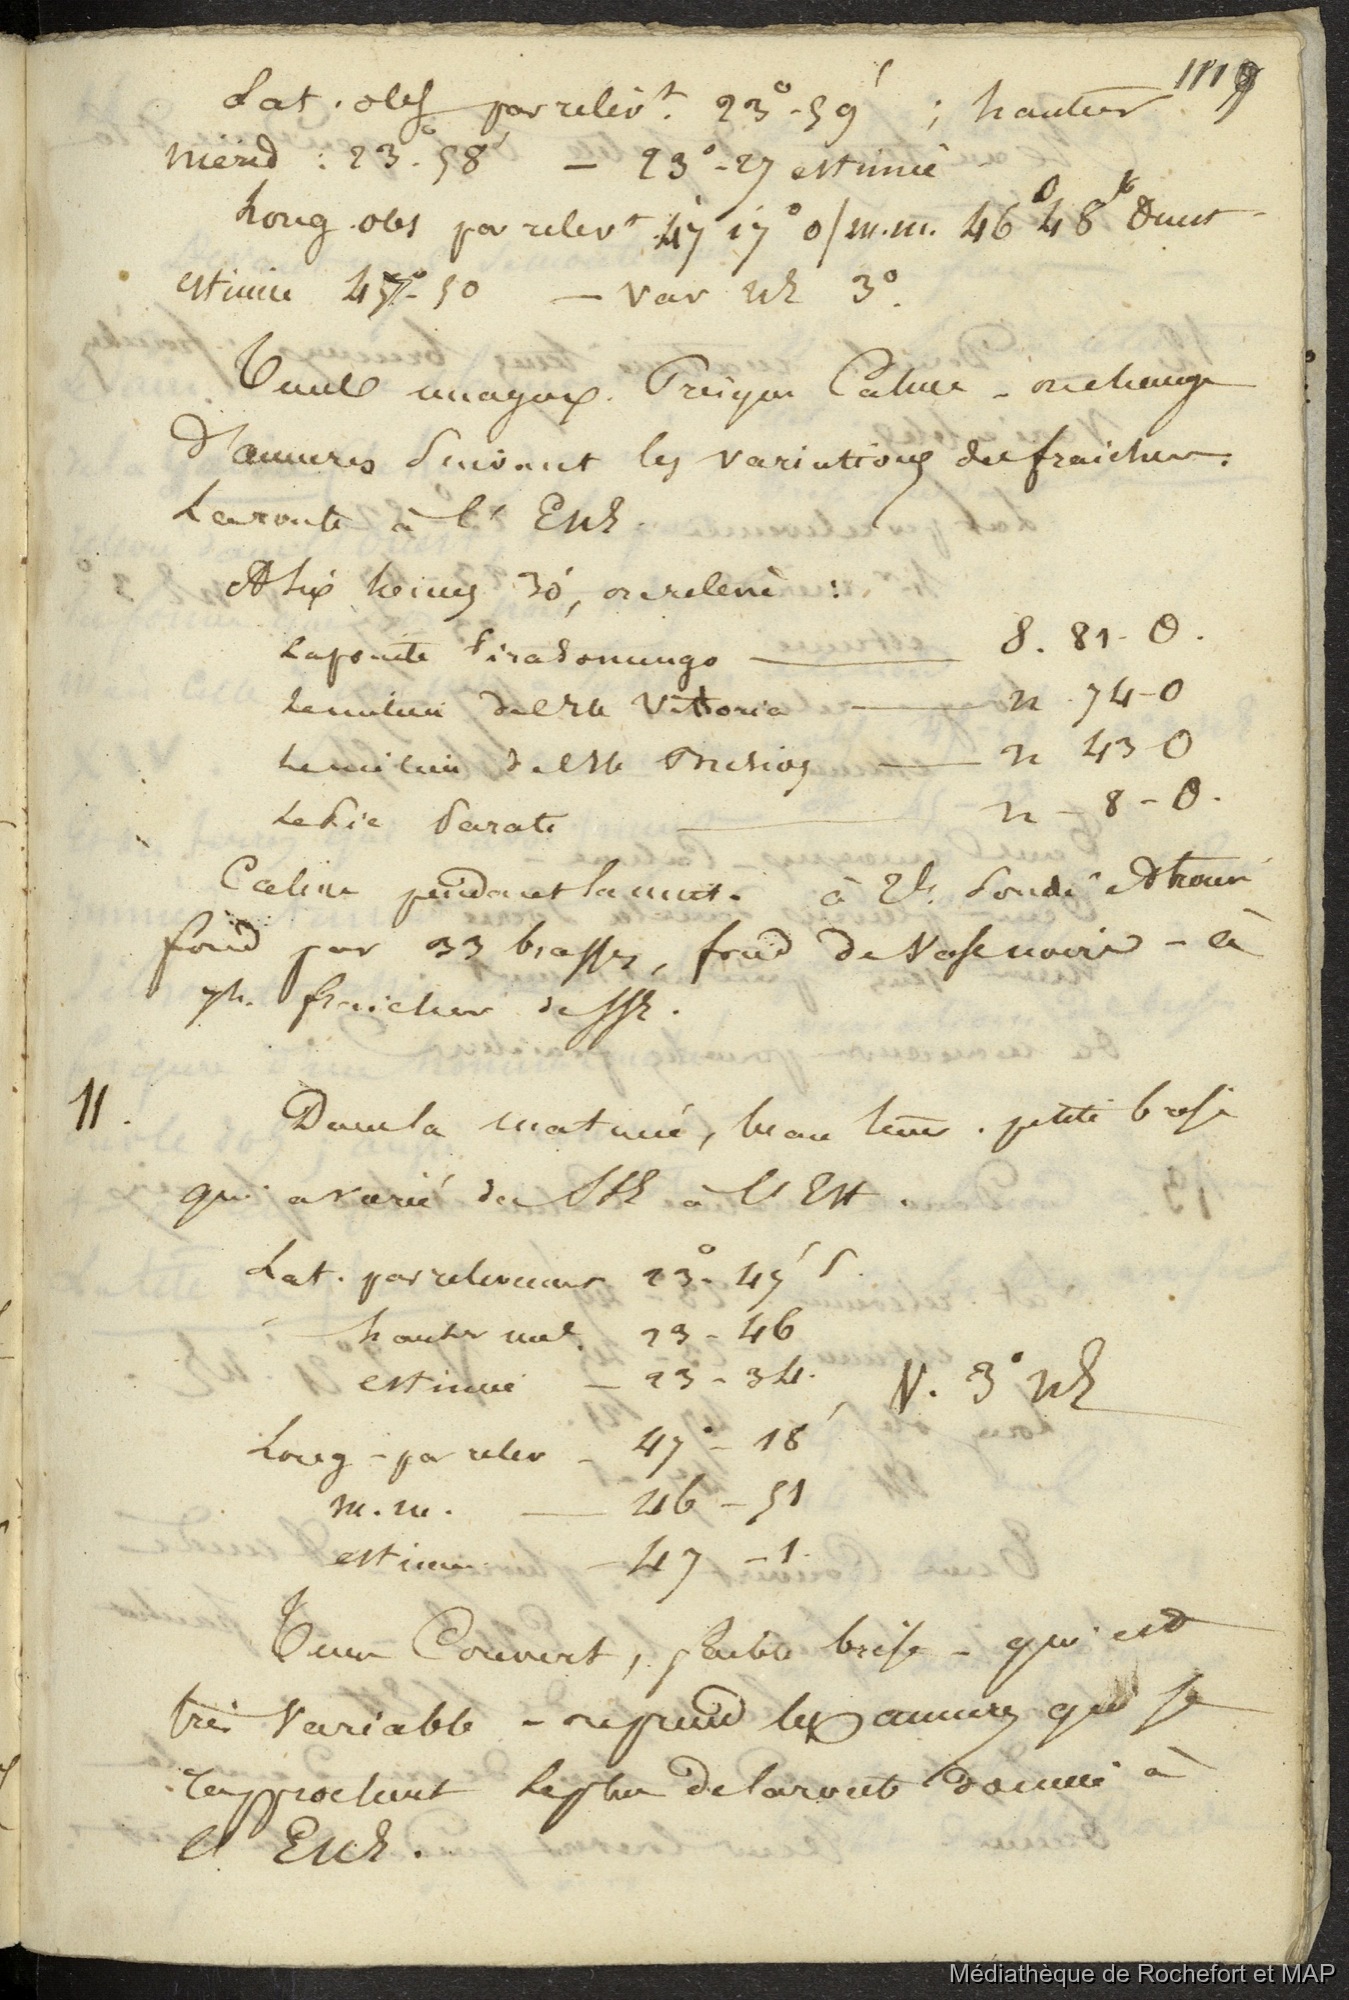 1119
Lat. obs par relevt. 23°-59' ; hauteur
merid : 23°-58' — 23°-27 estimée
Long. obs par relevt 47 17° o/m.m. 46° 48' Ouest
estimée 45°-50 — Var NE 3°.
Tems nuageux. Presque Calme - on change
d'amures Suivant les variations des fraicheurs.
La route à l' ENE.
A six heures 30', on releva :
La pointe Pirasonungo — S. 81- O.
Le milieu de l'Ile Vittoria — N 74-O
Le milieu de l'Ile Busios — N 43 O
Le Pic Parati — N - 8 - O.
Calme pendant la nuit. à 2h. Sondé et trouvé
fond par 33 brasses, fond de Vase noire - à
7h. fraicheur de SSE.
11. Dans la matinée, beau tems. petite brise
qui a varié du SSE à l'Est.
Lat. par relevement 23°-45' S.
hauteur me. 23-46
estimée — 23-34. V. 3° NE
Long - par relev - 47°- 18'
m.m. — 46 - 51
estimée - 47 - 1.
Tems Couvert, faible brise - qui est
très Variable - on prend les amures qui se
rapprochent le plus de la route donnée à
l' ENE.
Médiathèque de Rochefort et MAP